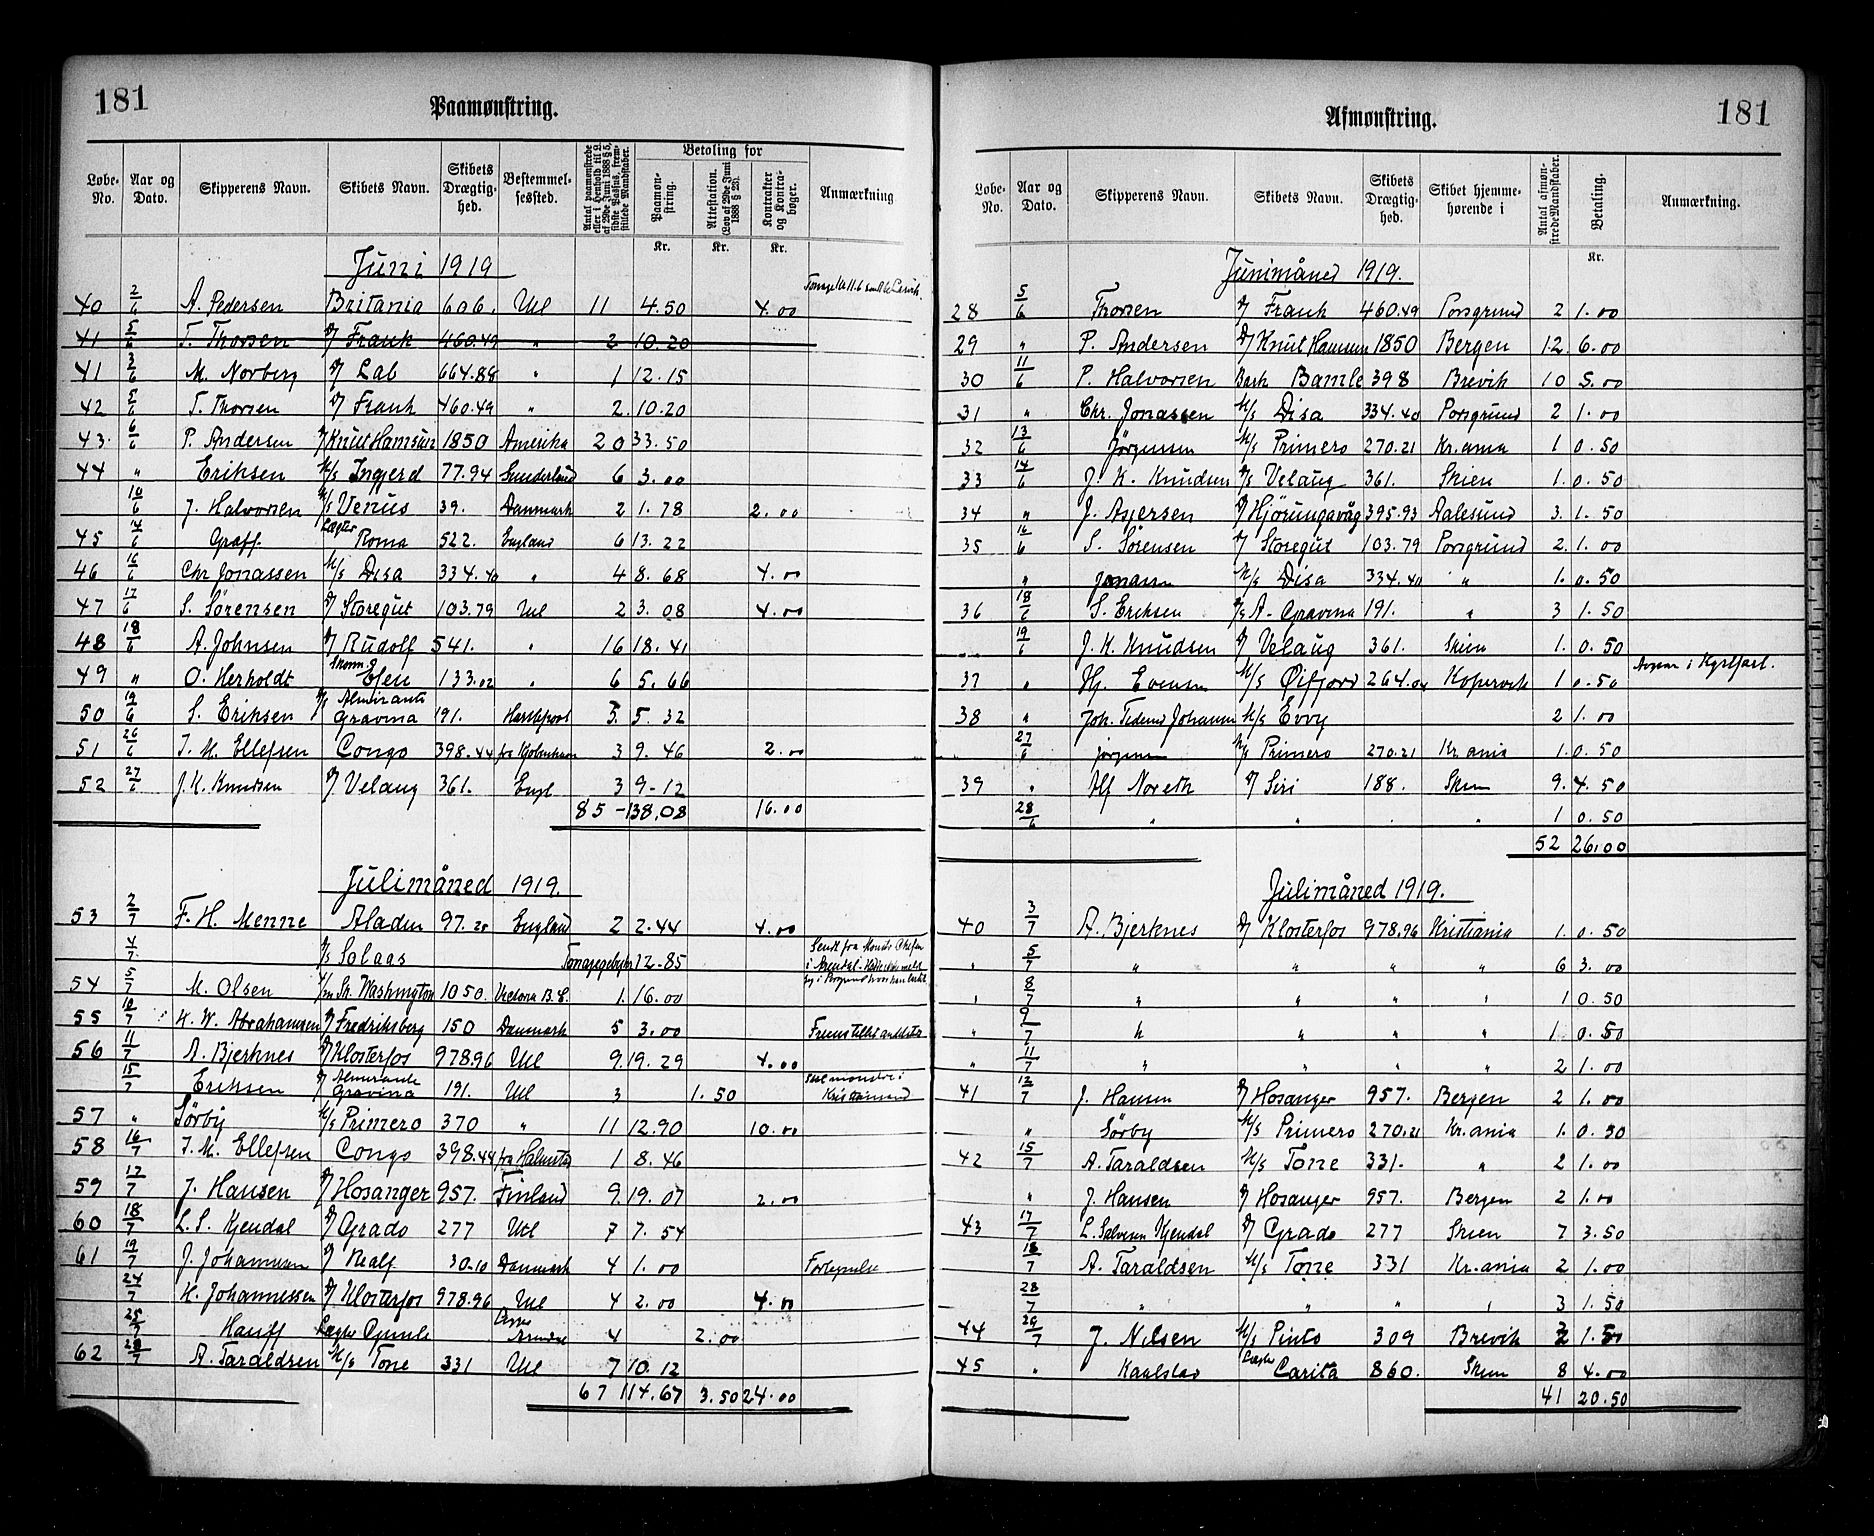 181
Paamønstring.
Løbe-No. Aar og Dato. Skipperens Navn. Skibets Navn. Skibets Drægtighed. Bestemmelsessted. Betaling for Paamønstring. Attestation. (Lov af 29de Juni 1888 § 23). Kontrakter og Kontrabøger. Anmærkning
Kr. Kr. Kr.
Juni 1919
40 2/6 A. Pedersen Britania 606. Utl 11 4.50 4.00
41 5/6 T. Thorsen D/ Frank 460.49 " 2 10.20
41 3/6 M. Norberg D/ Lab 664.88 " 1 12.15
42 5/6 T. Thorsen D/ Frank 460.49 " 2. 10.20
43 6/6 P. Andersen D/ Knut Hamsun 1850 Amerika 20 33.50
44 " Eriksen M/s Ingjerd 77.94 Sunderland 6 3.00
10/6 J. Halvorsen M/s Venus 39. Danmark 2 1.78 2.00
45 14/6 Graff Lægter Roma 522. England 6 13.22
46 16/6 Chr Jonassen M/s Disa 334.40 " 4 8.68 4.00
47 17/6 S. Sörensen D/ Storegut 103.79 Utl 2 3.08 4.00
48 18/6 A. Johnsen D/ Rudolf 541. " 16 18.41
49 " O. Herholdt Skonn. Elen 133.02 " 6 5.66
50 19/6 S. Eriksen Almirante Gravina 191. Hartlepool 3. 5.32
51 26/6 J. M. Ellefsen Congo 398.44 fra Kjöbenhavn 3 9.46 2.00
52 27/6 J. K. Knudsen D/ Velaug 361. Engl 3 9-12
85 - 138.08 16.00
Julimåned 1919.
53 2/7 F. H. Menne Aladen 97.25 England 2 2.44 4.00
4/7 Solaas 12-85 Sendt fra i Arendal
54 5/7 M. Olsen Washington 1050. Victoria B.C. 1. 16.00
55 10/7 K. W. Abrahamsen D/ Fredriksberg 150 Danmark 5 3.00
56 11/7 A. Bjerknes D/ Klosterfos 978.96 Utl 9. 19.29 4.00
15/7 Eriksen Almirante Gravina 191. Utl 3 1.50 Kristiansand
57 " Sörby M/s Primero 370 " 11 12.90 10.00
58 16/7 J. M. Ellefsen Congo 398.44 fra Halmstad 1 8.46
59 17/7 J. Hansen D/ Hosanger 957. Finland 9. 19.07 2.00
60 18/7 L. S. Kjendal D/ Grado 277 Utl 7 7.54
61 19/7 J. Johannesen D/ Realf 30.10 Danmark 4 1.00
24/7 K. Johannessen D/ Klosterfos 978.96 Utl 4 2.00 4.00
25/7 Hauff Lægter Gunda Arendal 4 2.00
62 28/7 A. Taraldsen M/s Tone 331 Utl 7 10.12
67 114.67 3.50 24.00
181
Afmønstring.
Løbe-No. Aar og Dato. Skipperens Navn. Skibets Navn. Skibets Drægtighed. Skibet hjemmehørende i Antal afmønstrede Mandskaber. Betaling. Anmærkning.
Kr.
Junimåned 1919.
28 5/6 Thorsen D/ Frank 460.49 Porsgrund 2 1.00
29 " P. Andersen D/ Knut Hamsun 1850 Bergen 12. 6.00
30 11/6 P. Halvorsen Bark Bamle 398 Brevik 10 5.00
31 " Chr. Jonassen M/s Disa 334.40 Porsgrund 2 1.00
32 13/6 Jörgensen M/s Primero 270.21 Kr.ania 1 0.50
33 14/6 J. K. Knudsen D/s Velaug 361. Skien 1. 0.50
34 " J. Asjersen D/ Hjörungavåg 395.93 Aalesund 3. 1.50
35 16/6 S. Sörensen D/ Storegut 103.79 Porsgrund 2. 1.00
" Jonassen M/s Disa 334.40 " 1. 0.50
36 18/6 S. Eriksen A. Gravina 191. " 3 1.50
19/6 J. K. Knudsen D/ Velaug 361. Skien 1. 0.50
37 " Hj. Evensen M/s Öifjord 264.04 Kopervik 1 0.50
38 " Joh. Johansen M/s Evvy 2 1.00
27/6 Jörgensen M/s Primero 270.21 Kr.ania 1. 0.50
39 " Alf Noreth D/ Siri 188. Skien 9. 4.50
28/6 " " " 1 0.50
52 26.00
Julimåned 1919.
40 3/7 A. Bjerknes D/ Klosterfos 978.96 Kristiania 1. 0.50
" 5/7 " " " " 6 3.00
" 8/7 " " " " 1 0.50
" 9/7 " " " " 1. 0.50
" 11/7 " " " " 2 1.00
41 12/7 J. Hansen D/ Hosanger 957. Bergen 2 1.00
" Sörby M/s Primero 270.21 Kr.ania 1. 0.50
42 15/7 A. Taraldsen M/s Tone 331. " 2 1.00
" J. Hansen D/ Hosanger 957. Bergen 2 1.00
43 17/7 L. Salvesen Kjendal D/ Grado 277 Skien 7 3.50
18/7 A. Taraldsen M/s Tone 331 Kr.ania 2 1.00
28/7 " " " " 3 1.50
44 26/7 J. Nilsen M/s Pinto 309 Brevik 1.50
45 " Kaalstad Lægter Carita 860. Skien 8 4.00
41 20.50